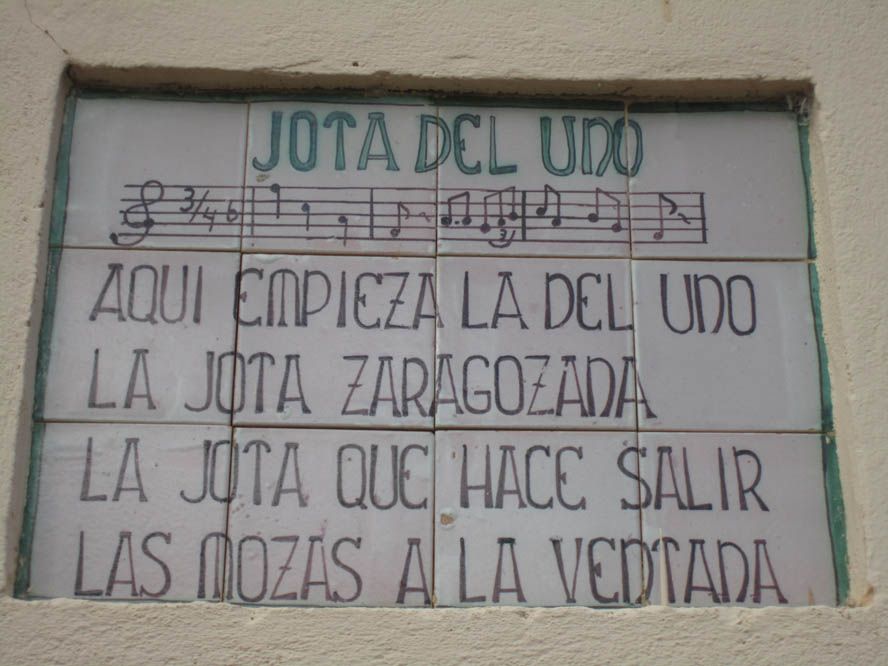 JOTA DEL UNO
3/4
3
AQUI EMPIEZA LA DEL UNO
LA JOTA ZARAGOZANA
LA JOTA QUE HACE SALIR
LAS MOZAS A LA VENTANA